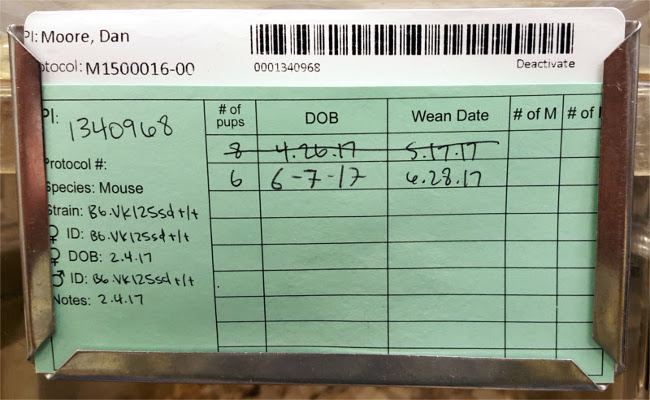 PI: Moore, Dan
otocol: M1500016-00
0001340968
Deactivate
PI: 1340968
Protocol #:
Species: Mouse
Strain: B6.VK125sd +/+
♀ ID: B6.VK125sd +/+
♀ DOB: 2.4.17
♂ ID: B6.VK125sd +/+
Notes: 2.4.17
# of pups DOB Wean Date # of M # of
8 4.26.17 5.17.17
6 6-7-17 6.28.17